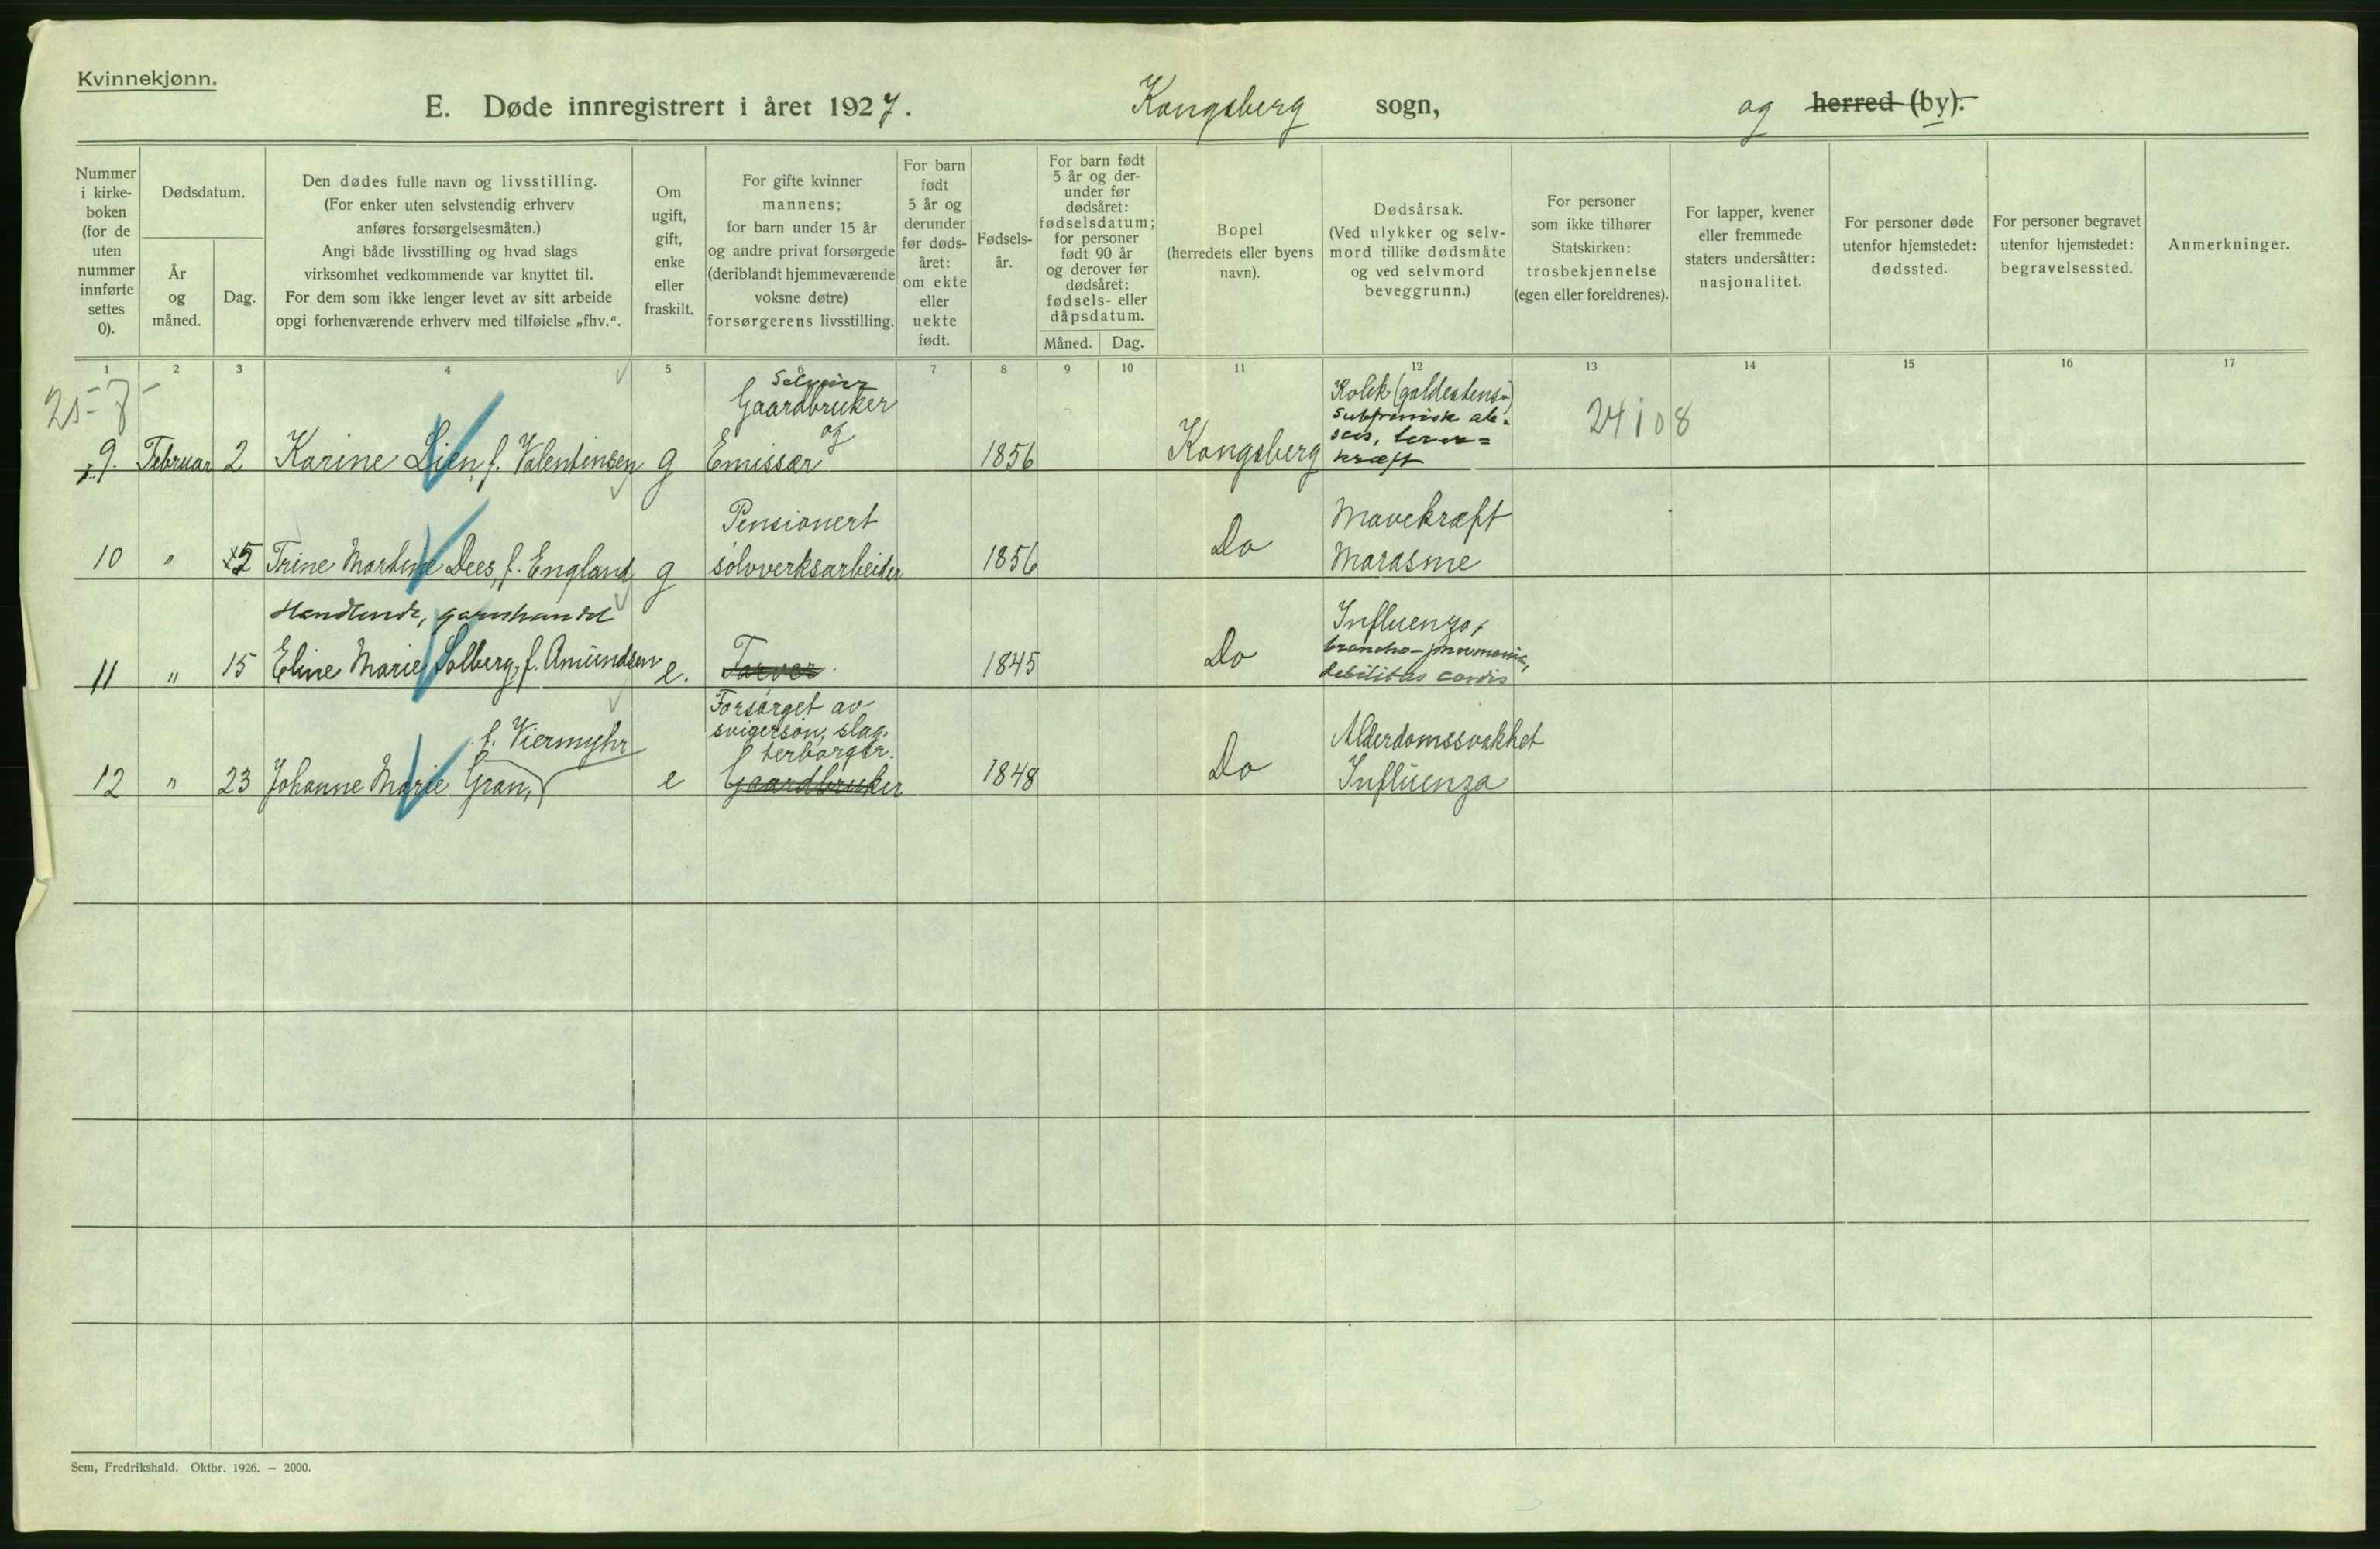 Kvinnekjønn.
E. Døde innregistrert i året 1927. Kongsberg sogn, og herred (by).
Nummer i kirke- boken (for de uten nummer innførte settes 0).
Dødsdatum.
År og måned.
Dag.
Den dødes fulle navn og livsstilling.
(For enker uten selvstendig erhverv
anføres forsørgelsesmåten.)
Angi både livsstilling og hvad slags
virksomhet vedkommende var knyttet til.
For dem som ikke lenger levet av sitt arbeide
opgi forhenværende erhverv med tilføielse „fhv.“.
Om ugift, gift, enke eller fraskilt.
For gifte kvinner
mannens;
for barn under 15 år
og andre privat forsørgede
(deriblandt hjemmeværende
voksne døtre)
forsørgerens livsstilling.
For barn født 5 år og derunder før døds- året: om ekte eller uekte født.
Fødsels- år.
For barn født
5 år og der-
under før
dødsåret:
fødselsdatum;
for personer
født 90 år
og derover før
dødsåret:
fødsels- eller
dåpsdatum.
Måned. Dag.
Bopel
(herredets eller byens
navn).
Dødsårsak.
(Ved ulykker og selv-
mord tillike dødsmåte
og ved selvmord
beveggrunn.)
For personer
som ikke tilhører
Statskirken:
trosbekjennelse
(egen eller foreldrenes).
For lapper, kvener
eller fremmede
staters undersåtter:
nasjonalitet.
For personer døde
utenfor hjemstedet:
dødssted.
For personer begravet
utenfor hjemstedet:
begravelsessted.
Anmerkninger.
1 2 3 4 5 6 7 8 9 10 11 12 13 14 15 16 17
25-7-
Selveier
Gaardbruker
og
9. Februar 2 Karine Lien, f. Valentinsen g Emissær 1856 Kongsberg
Kolik (galdestens)
Subfrenisk abs-
ces, lever=
kræft
24108
Pensionert
10 " 5 Trine Martine Dees, f. England g sølvverksarbeider 1856 Do
Mavekræft
Marasme
Handlende, garnhandel
11 " 15 Eline Marie Solberg, f. Amundsen e. Farver 1845 Do
Influenza,
broncho-pneumonia,
debilitas cordis
Forsørget av
svigersøn, slag-
terborger.
f. Viermyhr
12 " 23 Johanne Marie Gran, e Gaardbruker 1848 Do
Alderdomssvakhet
Influenza
Sem, Fredrikshald. Oktbr. 1926. – 2000.